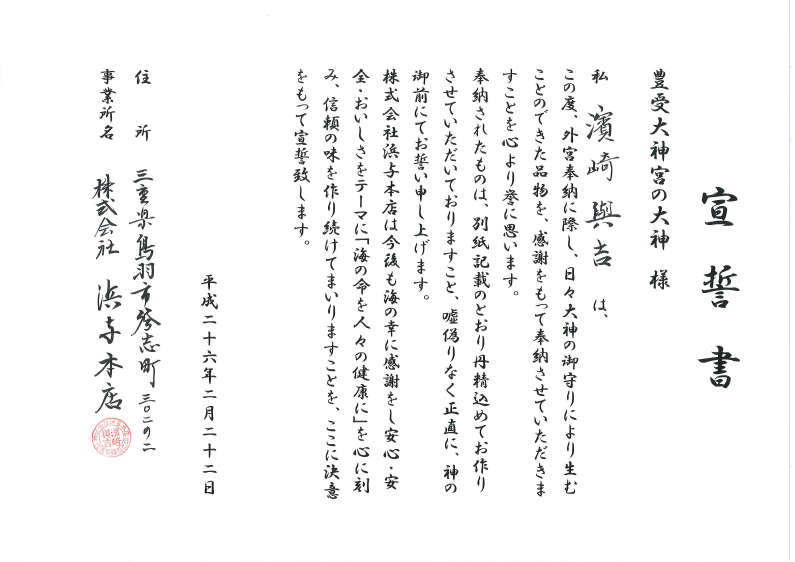 宣誓書
豊受大神宮の大神 様
私 濱崎與吉 は、
この度、外宮奉納に際し、日々大神の御守りにより生む
ことのできた品物を、感謝をもって奉納させていただきま
すことを心より誉に思います。
奉納されたものは、別紙記載のとおり丹精込めてお作り
させていただいておりますこと、嘘偽りなく正直に、神の
御前にてお誓い申し上げます。
株式会社浜与本店は今後も海の幸に感謝をし安心・安
全・おいしさをテーマに「海の命を人々の健康に」を心に刻
み、信頼の味を作り続けてまいりますことを、ここに決意
をもって宣誓致します。
平成二十六年二月二十二日
住所 三重県鳥羽市答志町三〇二の二
事業所名 株式会社 浜与本店